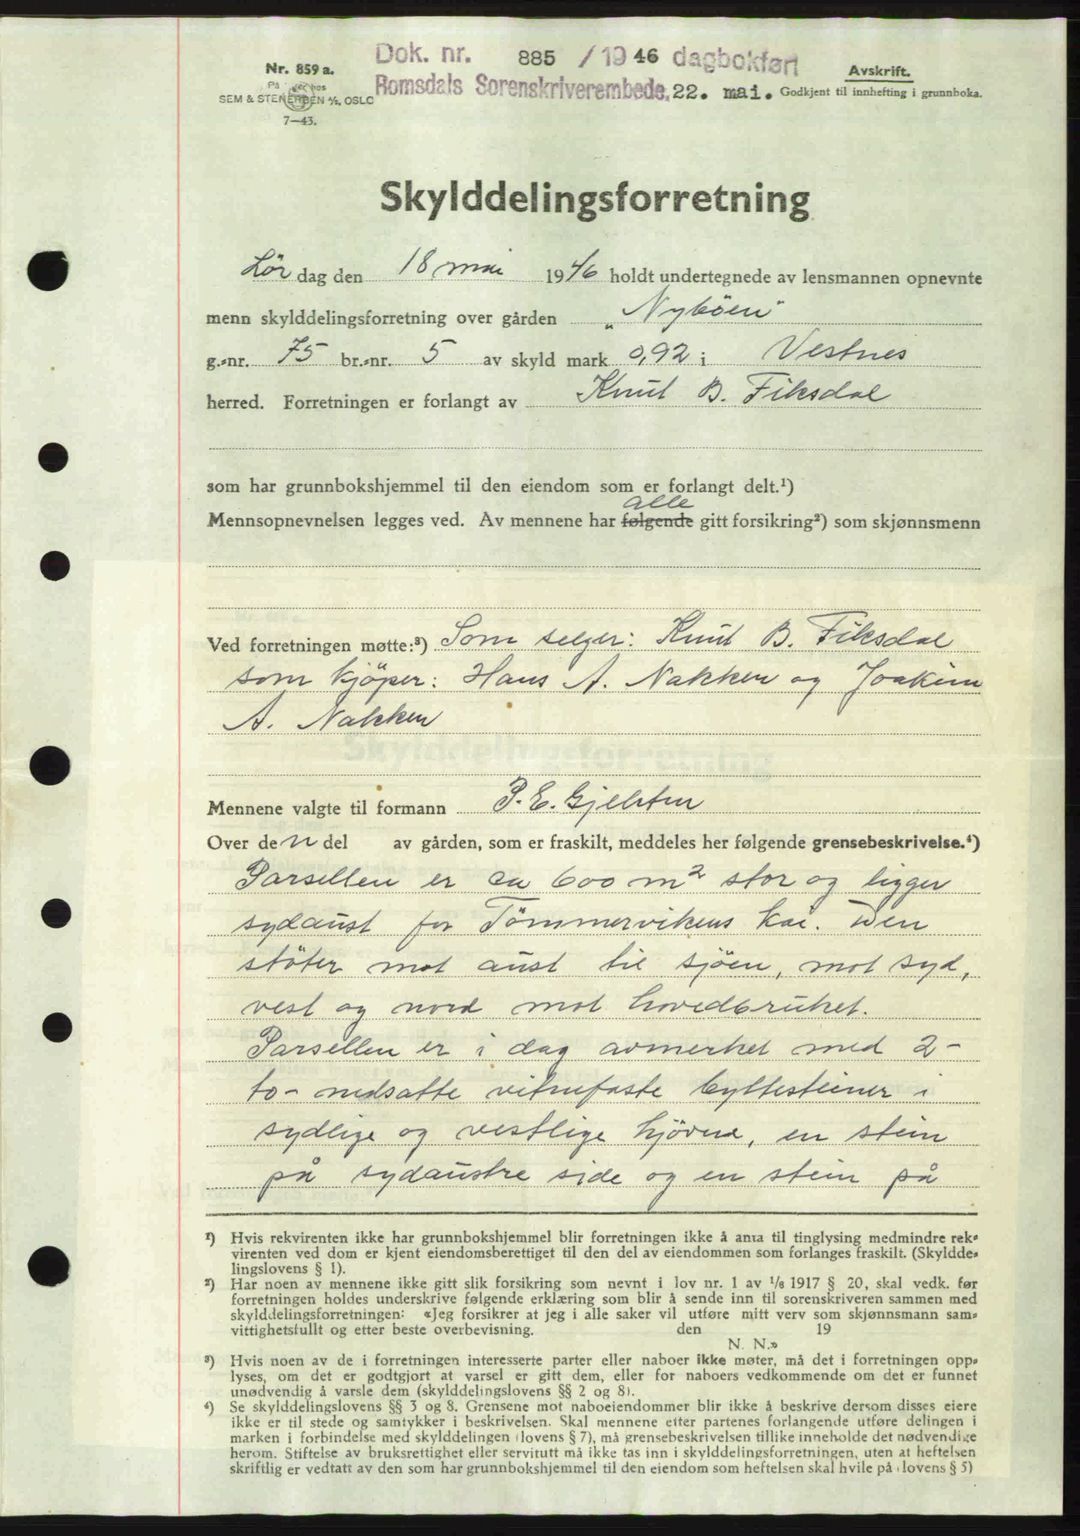 Dok. nr. 885 / 1946 dagbokført
Romsdals Sorenskriverembede, 22. mai.
Nr. 859 a.
SEM & STENERSEN A/S, OSLO
7—43.
Avskrift.
Godkjent til innhefting i grunnboka.
Skylddelingsforretning
Lör dag den 18 mai 1946 holdt undertegnede av lensmannen opnevnte
menn skylddelingsforretning over gården „Nybøen"
g.-nr. 75 br.-nr. 5 av skyld mark 0,92 i Vestnes
herred. Forretningen er forlangt av Knut B. Fiksdal
som har grunnbokshjemmel til den eiendom som er forlangt delt.¹)
alle
Mennsopnevnelsen legges ved. Av mennene har følgende gitt forsikring²) som skjønnsmenn
Ved forretningen møtte:³) Som selger: Knut B. Fiksdal
som kjöper: Hans A. Nakken og Joakim
A. Nakken
Mennene valgte til formann P. E. Gjelsten
Over den del av gården, som er fraskilt, meddeles her følgende grensebeskrivelse.⁴)
Parsellen er ca 600 m² stor og ligger
sydaust for Tömmervikens kai. Den
stöter mot aust til sjöen, mot syd,
vest og nord mot hovedbruket.
Parsellen er i dag avmerket med 2-
to- nedsatte vitnefaste byttesteiner i
sydlige og vestlige hjörne, en stein
på sydaustre side og en stein på
¹) Hvis rekvirenten ikke har grunnbokshjemmel blir forretningen ikke å anta til tinglysing medmindre rek-
virenten ved dom er kjent eiendomsberettiget til den del av eiendommen som forlanges fraskilt. (Skyldde-
lingslovens § 1).
²) Har noen av mennene ikke gitt slik forsikring som nevnt i lov nr. 1 av 1/8 1917 § 20, skal vedk. før
forretningen holdes underskrive følgende erklæring som blir å sende inn til sorenskriveren sammen med
skylddelingsforretningen: «Jeg forsikrer at jeg i alle saker vil utføre mitt verv som skjønnsmann sam-
vittighetsfullt og etter beste overbevisning. den 19
N. N.»
³) Hvis noen av de i forretningen interesserte parter eller naboer ikke møter, må det i forretningen opp-
lyses, om det er godtgjort at varsel er gitt dem, eller for naboers vedkommende om det er funnet
unødvendig å varsle dem (skylddelingslovens §§ 2 og 8).
⁴) Se skylddelingslovens §§ 3 og 8. Grensene mot naboeiendommer blir ikke å beskrive dersom disses eiere
ikke er til stede og samtykker i beskrivelsen. Skal mennene etter partenes forlangende utføre delingen i
marken i forbindelse med skylddelingen (lovens § 7), må grensebeskrivelsen tillike inneholde det nødvendige
herom. Stiftelse av bruksrettighet eller servitutt må ikke tas inn i skylddelingsforretningen, uten at heftelsen
skriftlig er vedtatt av den som har grunnbokshjemmel til den eiendom som heftelsen skal hvile på (lovens § 5)